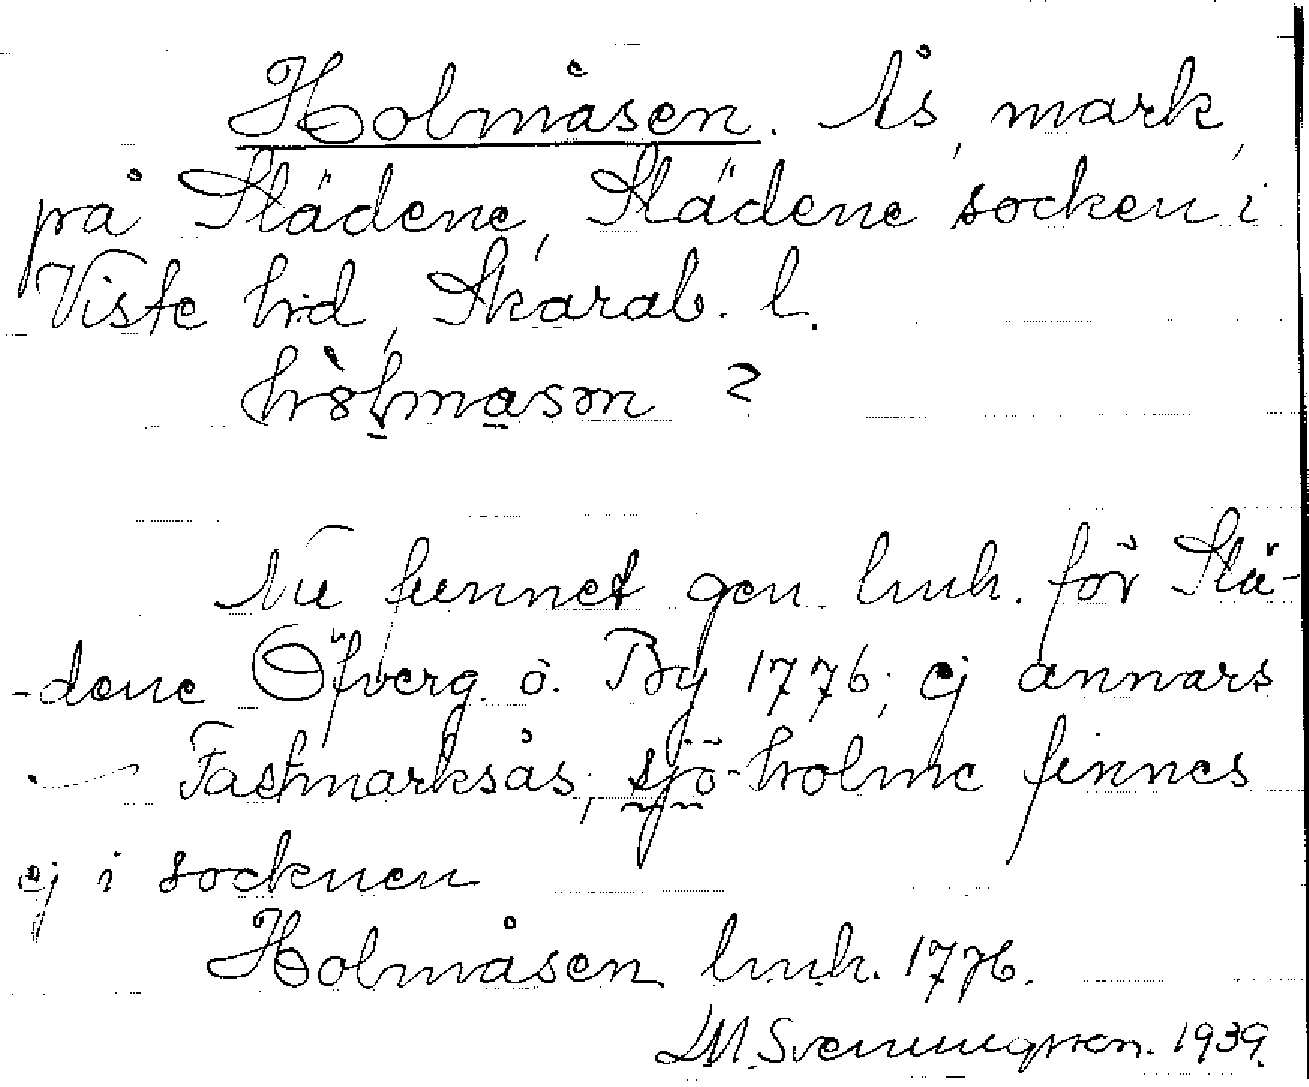 Holmåsen. Ås, mark,
på Slädene, Slädene socken i
Viste hd, Skarab. l.
hòlmasən ?
Nu funnet gen. lmh. för Slä-
-dene Öfverg. o. By 1776; ej annars
— Fastmarksås; sjö-holme finnes
ej i socknen
Holmåsen lmh. 1776.
LM. Svenungsson. 1939.